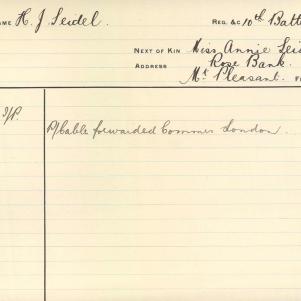 NAME H. J. Seidel. REG. &C 10th Batt
NEXT OF KIN Miss Annie Sei
ADDRESS Rose Bank.
Mt Pleasant.
P/Cable forwarded Commes London.